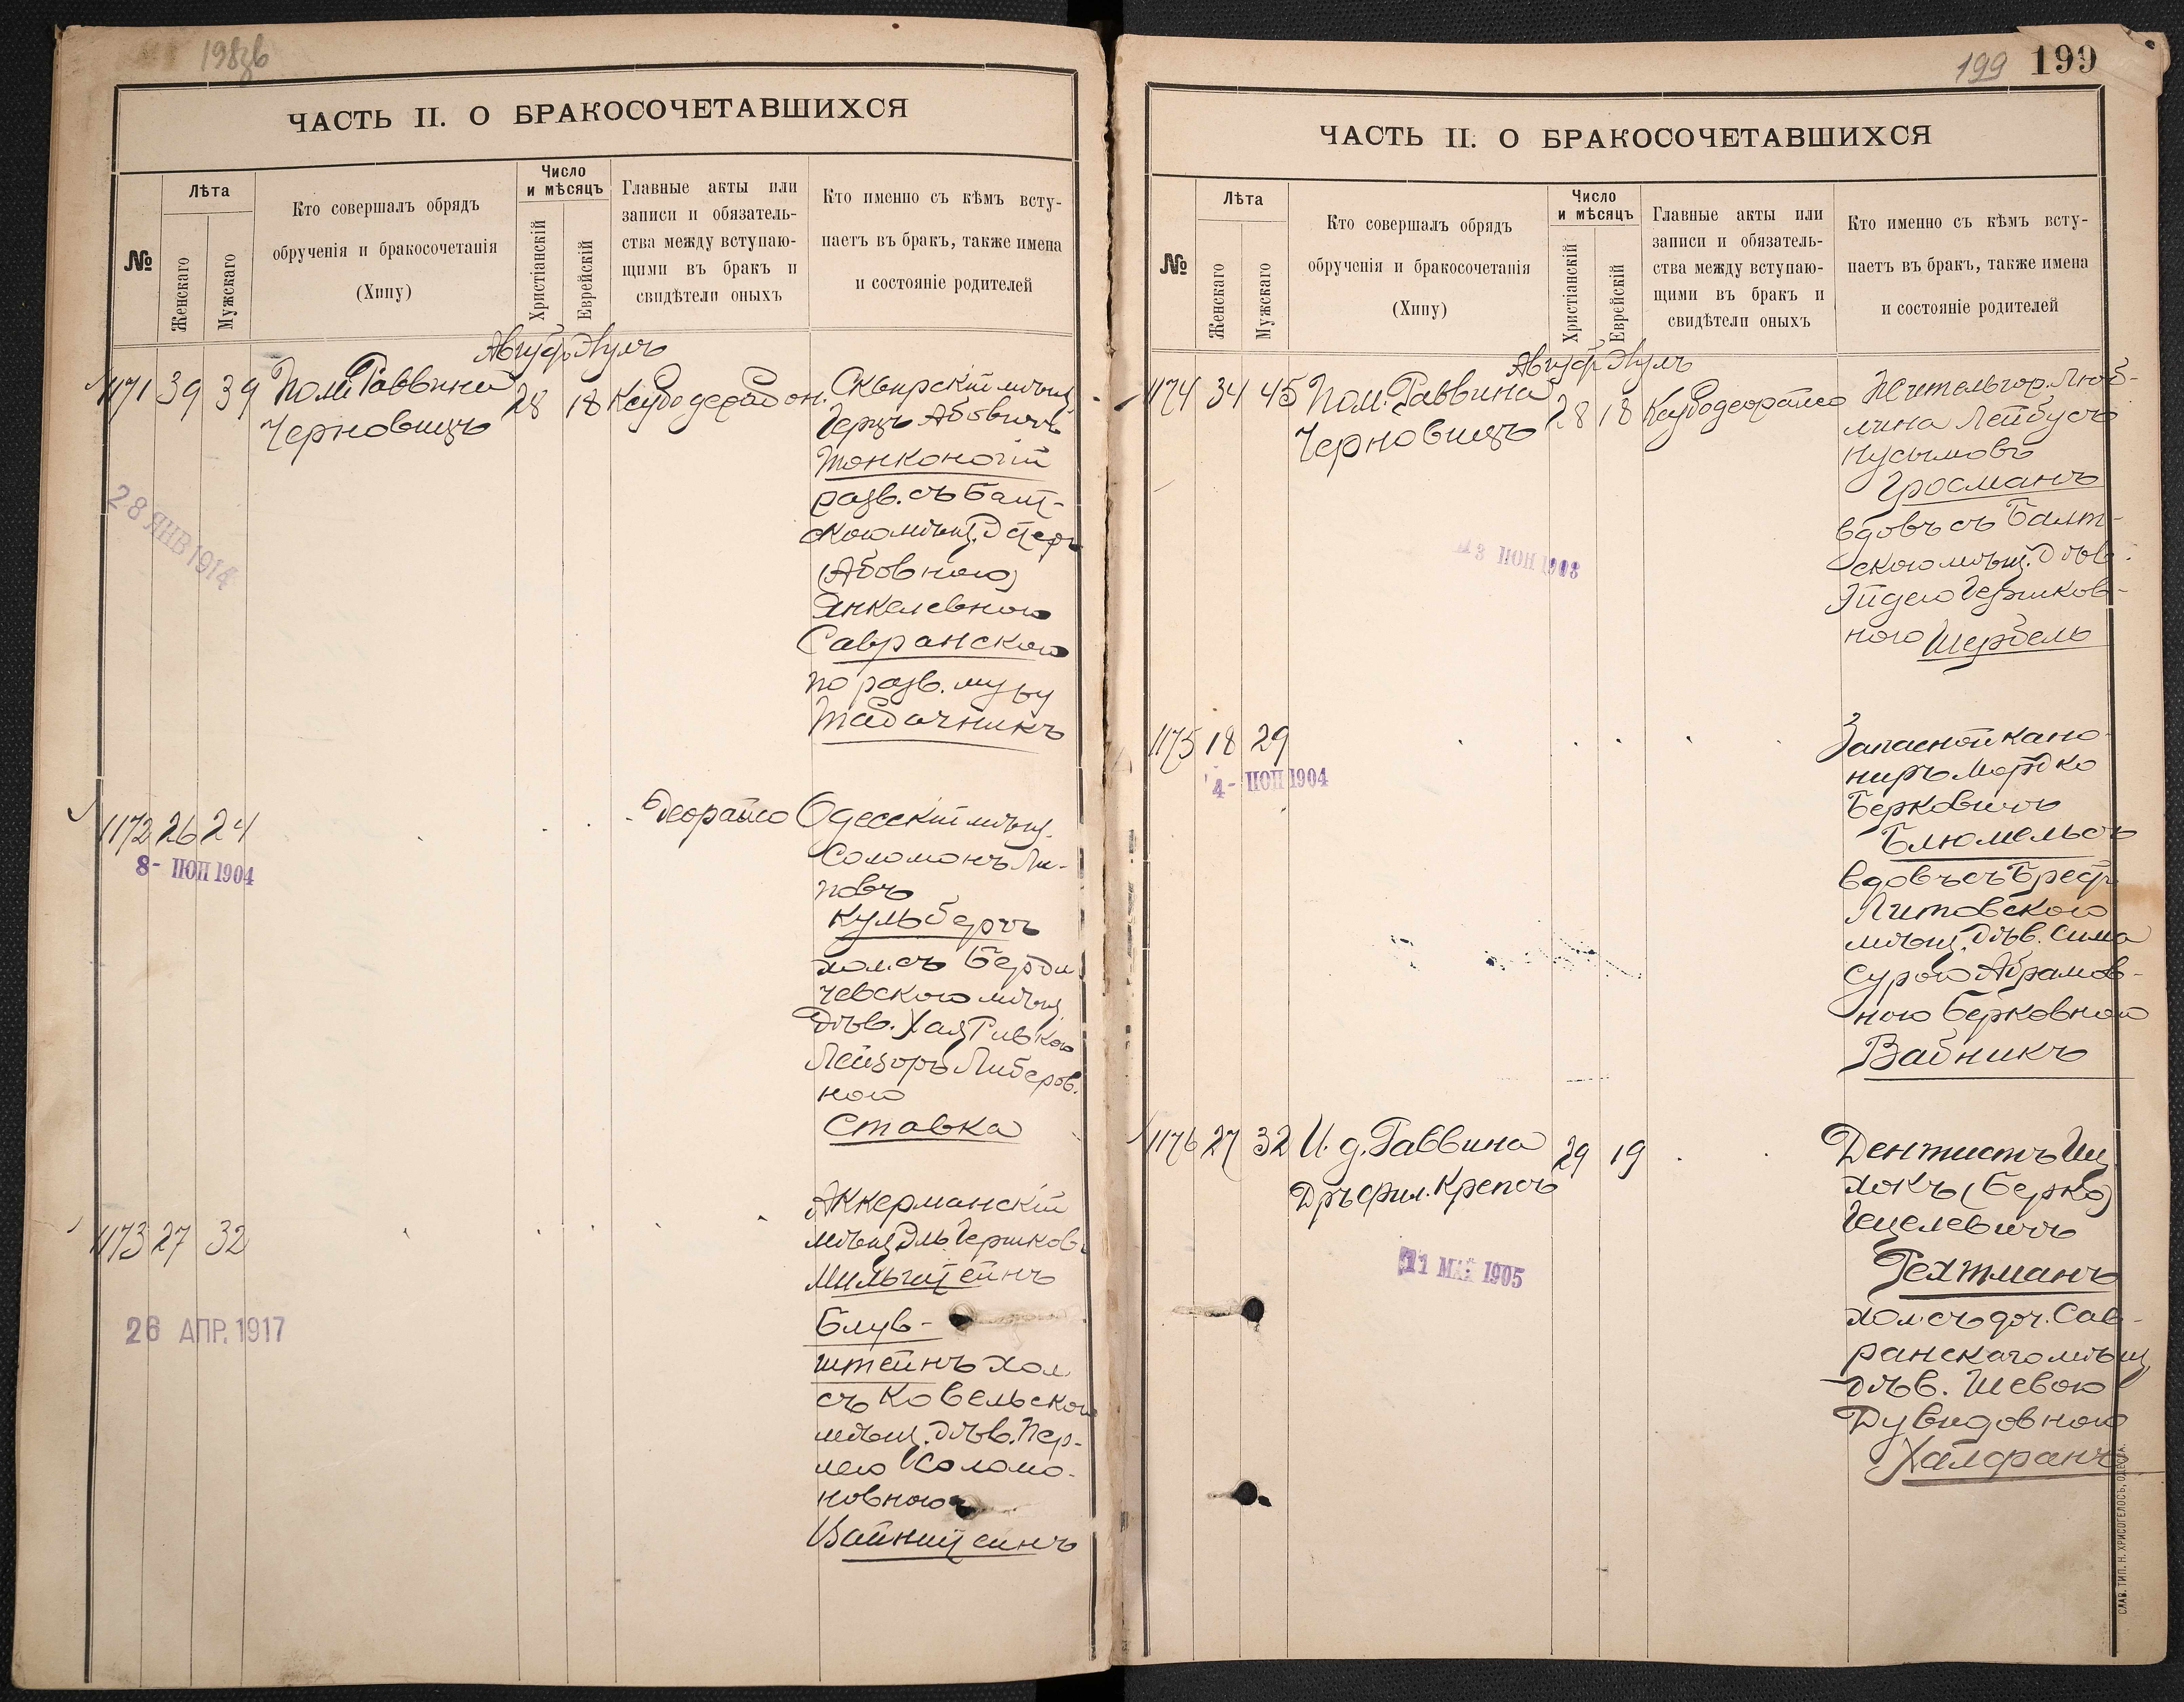 198зв
ЧАСТЬ II. О БРАКОСОЧЕТАВШИХСЯ
№
Лѣта
Женскаго
Мужскаго
Кто совершалъ обрядъ
обрученія и бракосочетанія
(Хипу)
Число
и мѣсяцъ
Христіанскій
Еврейскій
Главные акты или
записи и обязатель-
ства между вступаю-
щими въ бракъ и
свидѣтели оныхъ
Кто именно съ кѣмъ всту-
паетъ въ бракъ, также имена
и состояніе родителей
Августъ Элулъ
1171 39 39 Пом. Раввина 28 18
Черновицъ
Сквирскій мѣщ.
Герцъ Абовичъ
Тонконогій
разв. съ Балт-
скою мѣщ. Эстеръ
(Абовною)
Янкелевною
Савранскою
по разв. мужу
Табачникъ
28 ЯНВ 1914
1172 26 24 Деорайсо
8- ІЮН 1904
Одесскій мѣщ.
Соломонъ Ли-
повъ
Кульбергъ
хол. съ Берди
чевскою мѣщ.
дѣв. Хая Ривкою
Лейзоръ Либеров.
ною
Ставка
1173 27 32
26 АПР. 1917
Аккерманскій
мѣщ. Эль Гершков.
Мильштейнъ
Блув-
штейнъ хол
съ Ковельскою
мѣщ. дѣв. Пер-
лею Соломо-
новною
Вайнштейнъ
199 199
ЧАСТЬ II. О БРАКОСОЧЕТАВШИХСЯ
№
Лѣта
Женскаго
Мужскаго
Кто совершалъ обрядъ
обрученія и бракосочетанія
(Хипу)
Число
и мѣсяцъ
Христіанскій
Еврейскій
Главные акты или
записи и обязатель-
ства между вступаю-
щими въ бракъ и
свидѣтели оныхъ
Кто именно съ кѣмъ всту-
паетъ въ бракъ, также имена
и состояніе родителей
Августъ Элулъ
1174 34 45 Пом. Раввина 28 18 Ксубодеорайсо
Черновицъ
Житель гор. Люб-
лина Лейбусъ
Нусымовъ
Гросманъ
вдовъ съ Балт-
скою мѣщ. дѣв.
Эйдею Гершков-
ною Шербель
ІЮН
1175 18 29
4- ІЮН 1904
Запасной кано-
ниръ Мордко
Берковичъ
Блюмельсъ
вдовъ съ Брест
Литовскою
мѣщ. дѣв. Сима
Сурою Абрамов-
ною Берковною
Вайникъ
1176 27 32 И. д. Раввина 29 19
Дръ фил. Крепсъ
11 МАЯ 1905
Дентистъ Иц
хокъ (Берко)
Гецелевичъ
Гехтманъ
хол. съ доч. Сав-
ранскаго мѣщ
дѣв. Шевою
Дувидовною
Халфанъ
СЛАВ. ТИП. Н. ХРИСОГЕЛОСЪ, ОДЕССА.